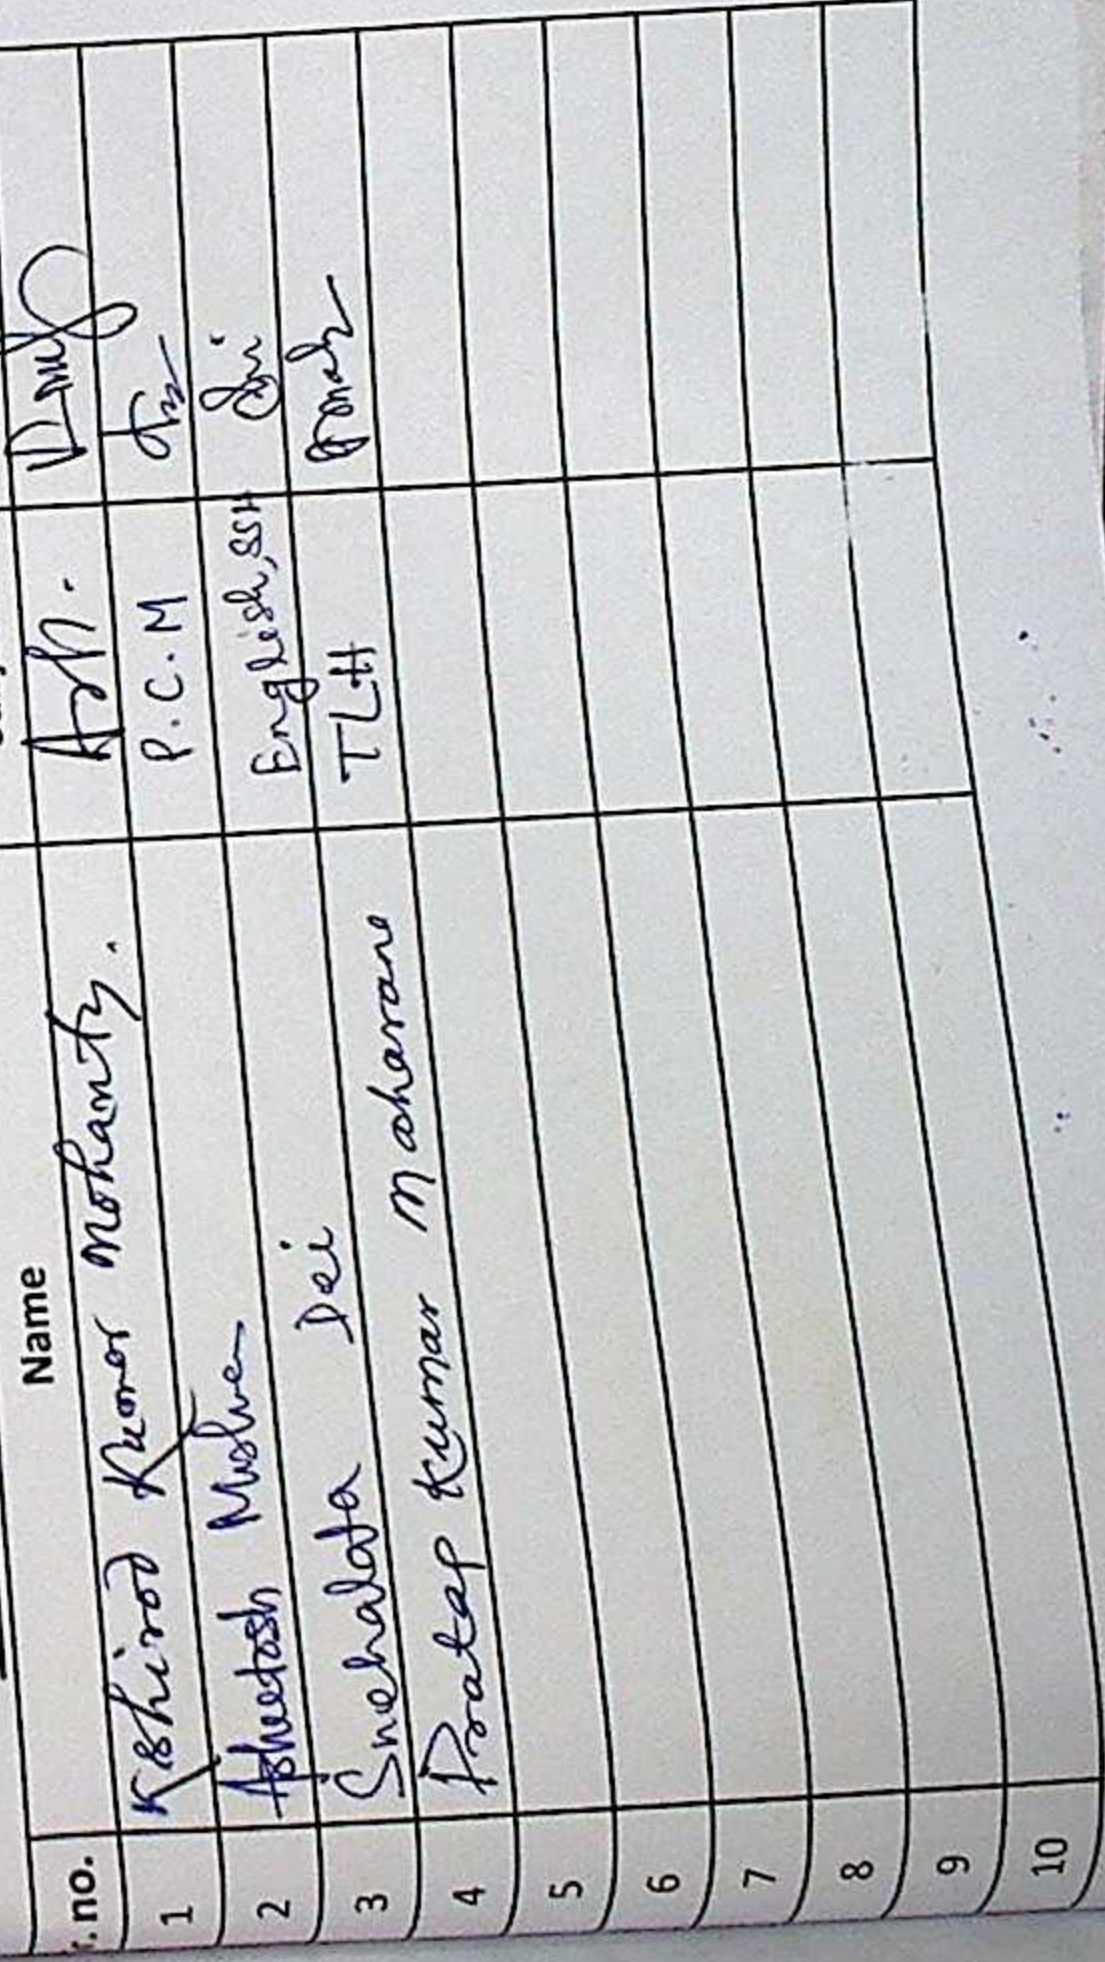 . no. Name
1 Kshirod Kumar Mohanty. Arh.
2 Asheetosh Mishra P.C.M
3 Snehalata Dei English, SSH
4 Pratap Kumar Moharana TLH
5
6
7
8
9
10